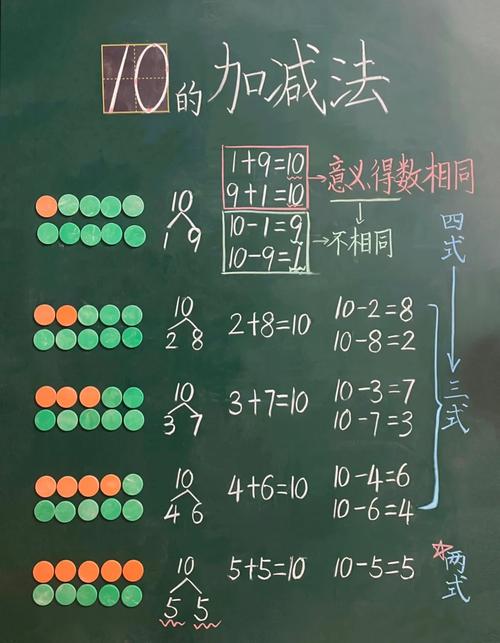 10的加减法
10
1 9
1+9=10
9+1=10
意义、得数相同
10-1=9
10-9=1
不相同
四式
10
2 8
2+8=10
10-2=8
10-8=2
10
3 7
3+7=10
10-3=7
10-7=3
三式
10
4 6
4+6=10
10-4=6
10-6=4
10
5 5
5+5=10
10-5=5
两式